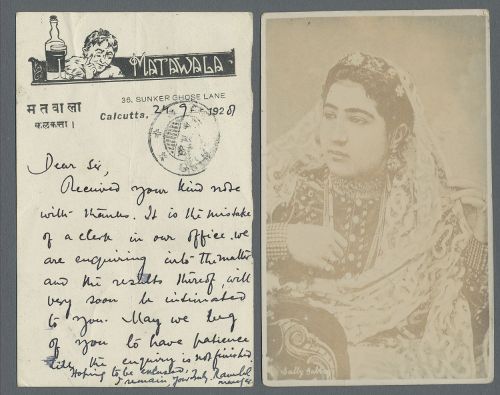 MATAWALA
मतवाला
कलकत्ता।
36, SUNKER GHOSE LANE
Calcutta, 24.9. 1928
Dear Sir,
Received your kind note
with thanks. It is the mistake
of a clerk in our office, we
are enquiring into the matter
and the results thereof, will
very soon be intimated
to you. May we beg
of you to have patience
till the enquiry is not finished.
Hoping to be excused,
I remain, Yours truly,
Sally